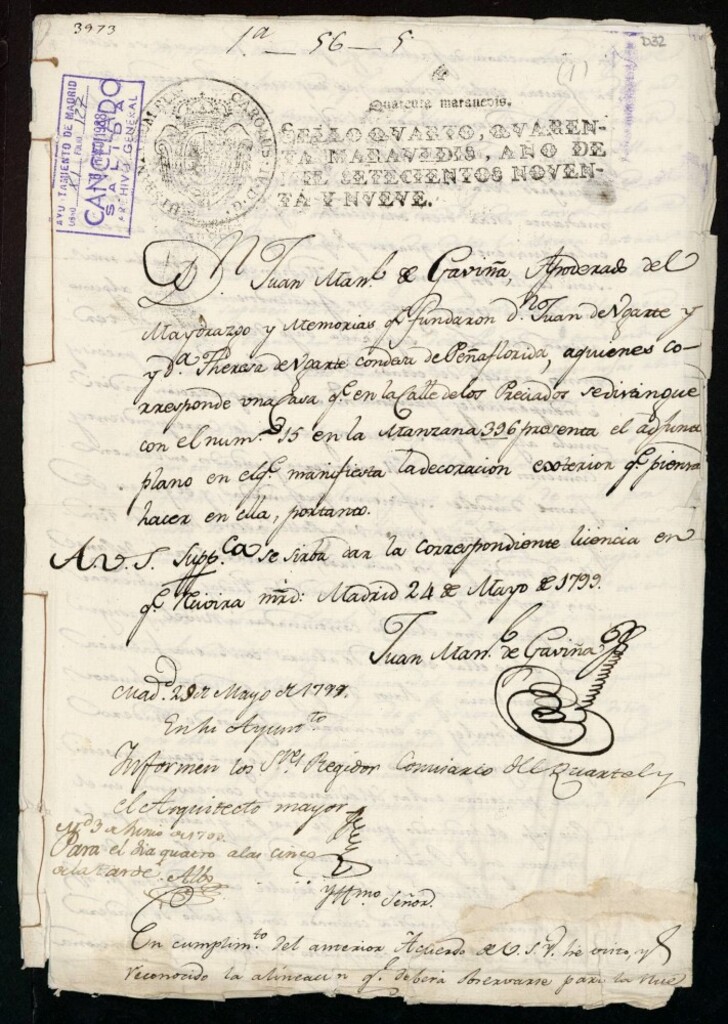 3973
1ª — 56 — 5
D32
(1)
AYUNTAMIENTO DE MADRID
CANCELADO
SALIDA
ARCHIVO GENERAL
CAROLUS IV D. G.
Quarenta maravedis.
SELLO QVARTO, QVAREN-
TA MARAVEDIS, AÑO DE
MIL SETECIENTOS NOVEN-
TA Y NVEVE.
Dn. Juan Manl. de Gaviña, Apoderado del
Mayorazgo y Memorias qe. fundaron dn. Juan de Ugarte y
y da. Theresa de Ugarte condesa de Peñaflorida, aquienes co-
rresponde una Casa qe. en la Calle de los Preciados se distingue
con el num.º 15 en la Manzana 396 presenta el adjunto
plano en elqe. manifiesta la decoracion exoterior qe. piensa
hacer en ella, portanto.
A. V. S. Suppca. se sirba dar la correspondiente licencia en
qe. Recivira mrd: Madrid 24 de Mayo de 1799.
Juan Manl. de Gaviña
Madd. 29 de Mayo de 1799.
En su Ayuntto.
Informen los Sres. Regidor Comisario del Quartel y
el Arquitecto mayor
Md. 3 de Junio de 1799
Para el dia quatro a las cinco
de la tarde. Albo
Yllmo. Señor.
En cumplimto. del anterior Acuerdo de V. S. Y. he visto, y
reconocido la alineacion qe. deberá observarse para la nue